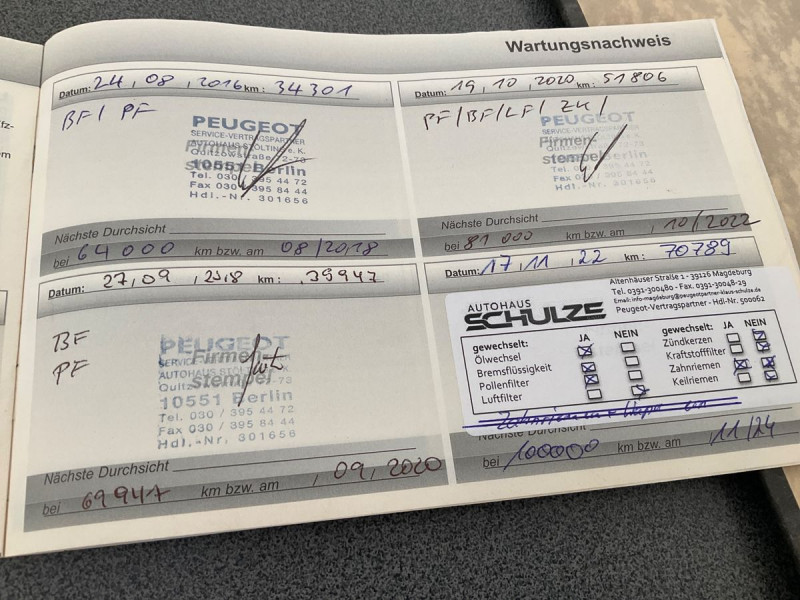 Wartungsnachweis
Datum: 24, 08, 2016 km: 34301
BF / PF
PEUGEOT
SERVICE-VERTRAGSPARTNER
AUTOHAUS STÖLTING e. K.
Firmen-
stempel
10551 Berlin
Tel. 030 / 395 44 72
Fax 030 / 395 84 44
Hdl.-Nr. 301656
Nächste Durchsicht
bei 64000 km bzw. am 08/2018
Datum: 27,09, 2018 km: 39947
BF
PF
PEUGEOT
Firmen-
stempel
10551 Berlin
Tel. 030 / 395 44 72
Fax 030 / 395 84 44
Hdl.-Nr. 301656
Nächste Durchsicht
bei 69947 km bzw. am 09, 2020
Datum: 19, 10, 2020 km: 51806
PF/BF/LF/ZK/
PEUGEOT
SERVICE-VERTRAGSPARTNER
Firmen-
stempel
Berlin
Hdl.-Nr. 301656
Nächste Durchsicht
bei 81000 km bzw. am 10/2022
Datum: 17, 11, 22 km: 70789
Altenhäuser Straße 1 - 39126 Magdeburg
Tel. 0391-300480 - Fax. 0391-30048-29
Email: info-magdeburg@peugeotpartner-klaus-schulze.de
Peugeot-Vertragspartner - Hdl-Nr. 500062
AUTOHAUS
SCHULZE
gewechselt: JA NEIN
Ölwechsel
Bremsflüssigkeit
Pollenfilter
Luftfilter
gewechselt: JA NEIN
Zündkerzen
Kraftstofffilter
Zahnriemen
Keilriemen
Nächste Durchsicht
bei 100000 km bzw. am 11/24